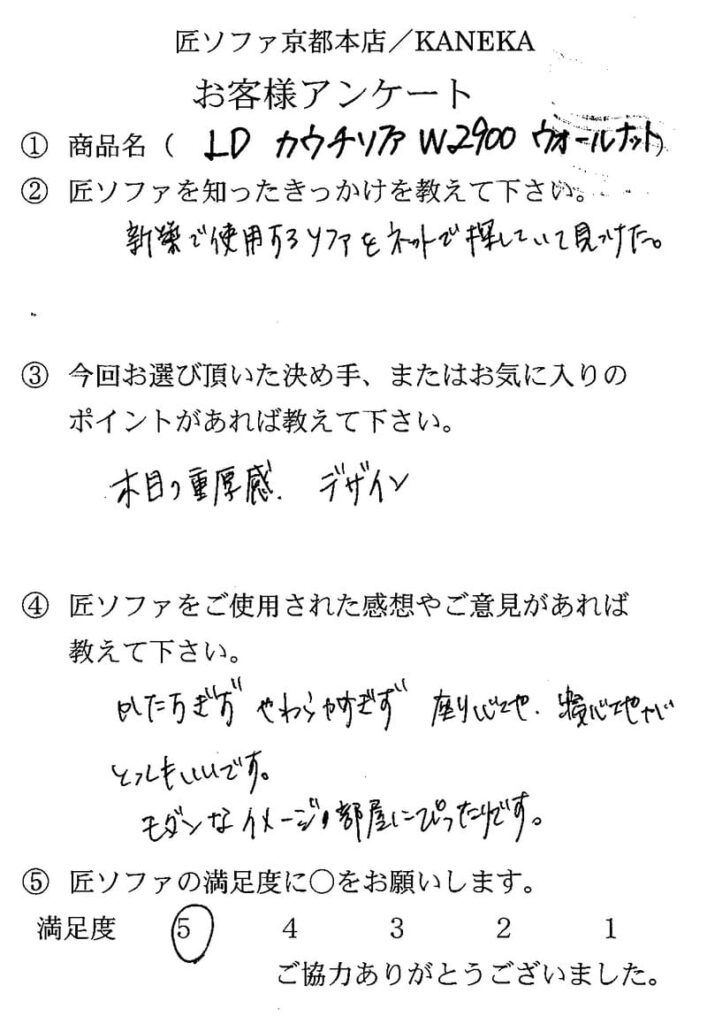 匠ソファ京都本店／KANEKA
お客様アンケート
① 商品名（ LD カウチソファ W2900 ウォールナット）
② 匠ソファを知ったきっかけを教えて下さい。
新築で使用するソファをネットで探していて見つけた。
③ 今回お選び頂いた決め手、またはお気に入りの
ポイントがあれば教えて下さい。
木目の重厚感. デザイン
④ 匠ソファをご使用された感想やご意見があれば
教えて下さい。
かたすぎず やわらかすぎず 座り心地、寝心地が
とってもいいです。
モダンなイメージの部屋にぴったりです。
⑤ 匠ソファの満足度に○をお願いします。
満足度 5 4 3 2 1
ご協力ありがとうございました。